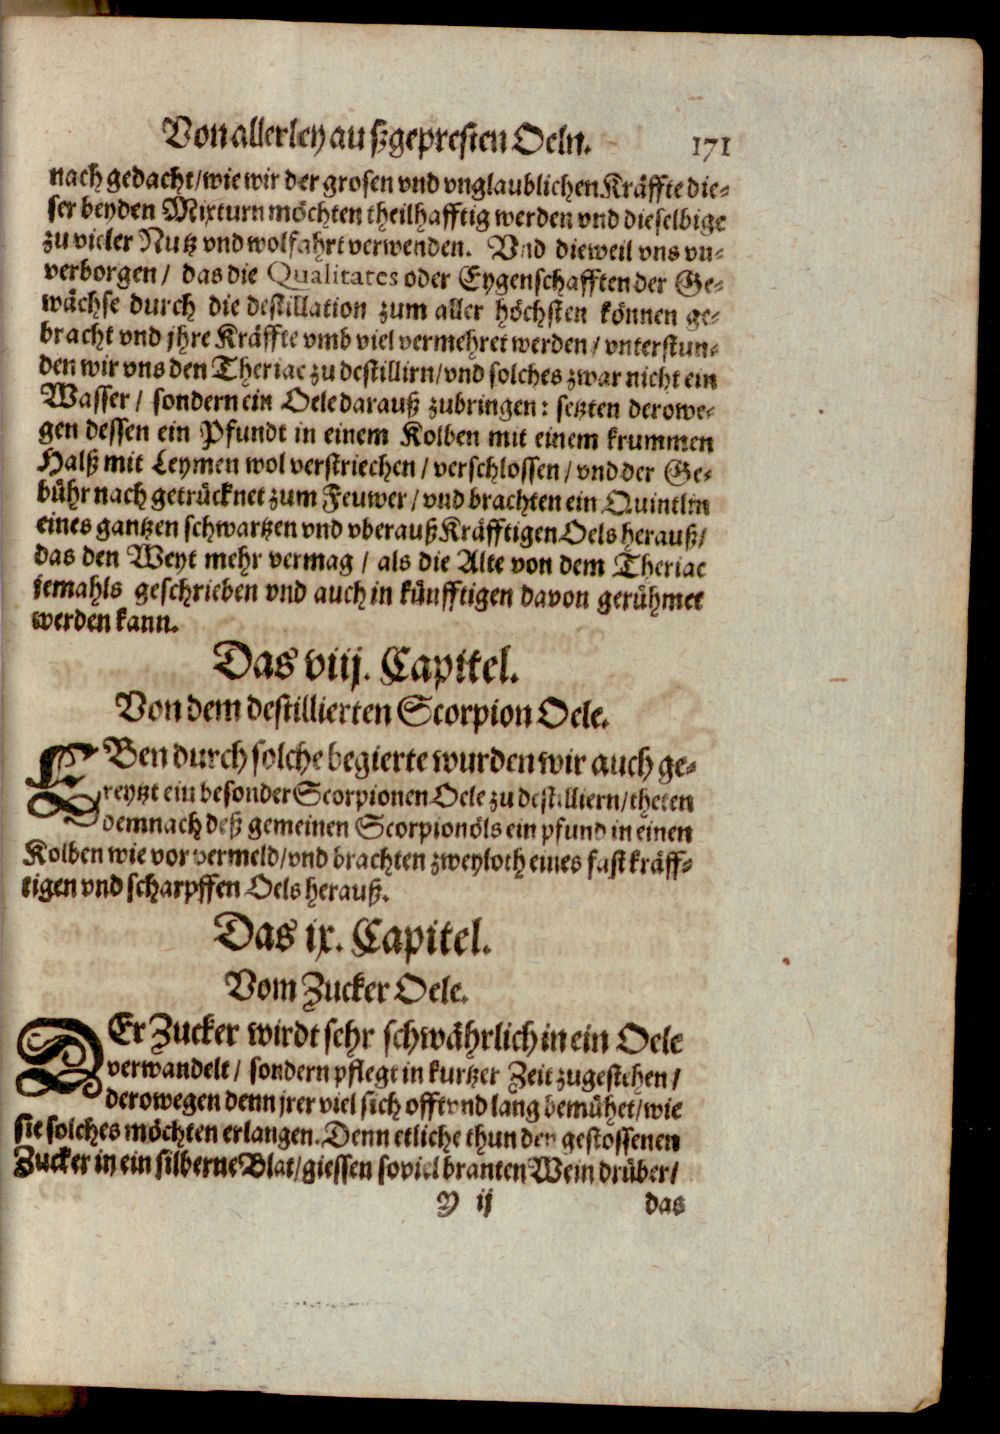 Von allerley außgepresten Oeln. 171
nach gedacht/wie wir der grosen vnd vnglaublichen Kräffte die-
ser beyden Mixturn möchten theilhafftig werden vnd dieselbige
zu vieler Nutz vnd wolfahrt verwenden. Vnd dieweil vns vn-
verborgen/ das die Qualitates oder Eygenschafften der Ge-
wächse durch die destillation zum aller höchsten können ge-
bracht vnd jhre Kräffte vmb viel vermehret werden/ vnterstun-
den wir vns den Theriac zu destillirn/vnd solches zwar nicht ein
Wasser/ sondern ein Oele darauß zubringen: setzten derowe-
gen dessen ein Pfundt in einem Kolben mit einem krummen
Halß mit Leymen wol verstriechen/ verschlossen/ vnd der Ge-
bühr nach getrücknet zum Feuwer/ vnd brachten ein Quintlin
eines gantzen schwartzen vnd vberauß Kräfftigen Oels herauß/
das den Weyt mehr vermag/ als die Alte von dem Theriac
jemahls geschrieben vnd auch in künfftigen davon gerühmet
werden kann.
Das viij. Capitel.
Von dem destillierten Scorpion Oele.
EBen durch solche begierte wurden wir auch ge-
reytzt ein besonder Scorpionen Oele zu destilliern/theten
demnach deß gemeinen Scorpionöls ein pfund in einen
Kolben wie vor vermeld/vnd brachten zwey loth eines fast kräff-
tigen vnd scharpffen Oels herauß.
Das ix. Capitel.
Vom Zucker Oele.
DEr Zucker wirdt sehr schwährlich in ein Oele
verwandelt/ sondern pflegt in kurtzer Zeit zugestehen/
derowegen denn jrer viel sich offt vnd lang bemühet/wie
sie solches möchten erlangen. Denn etliche thun den gestossenen
Zucker in ein silberne Blat/giessen soviel branten Wein drüber/
Y ij das